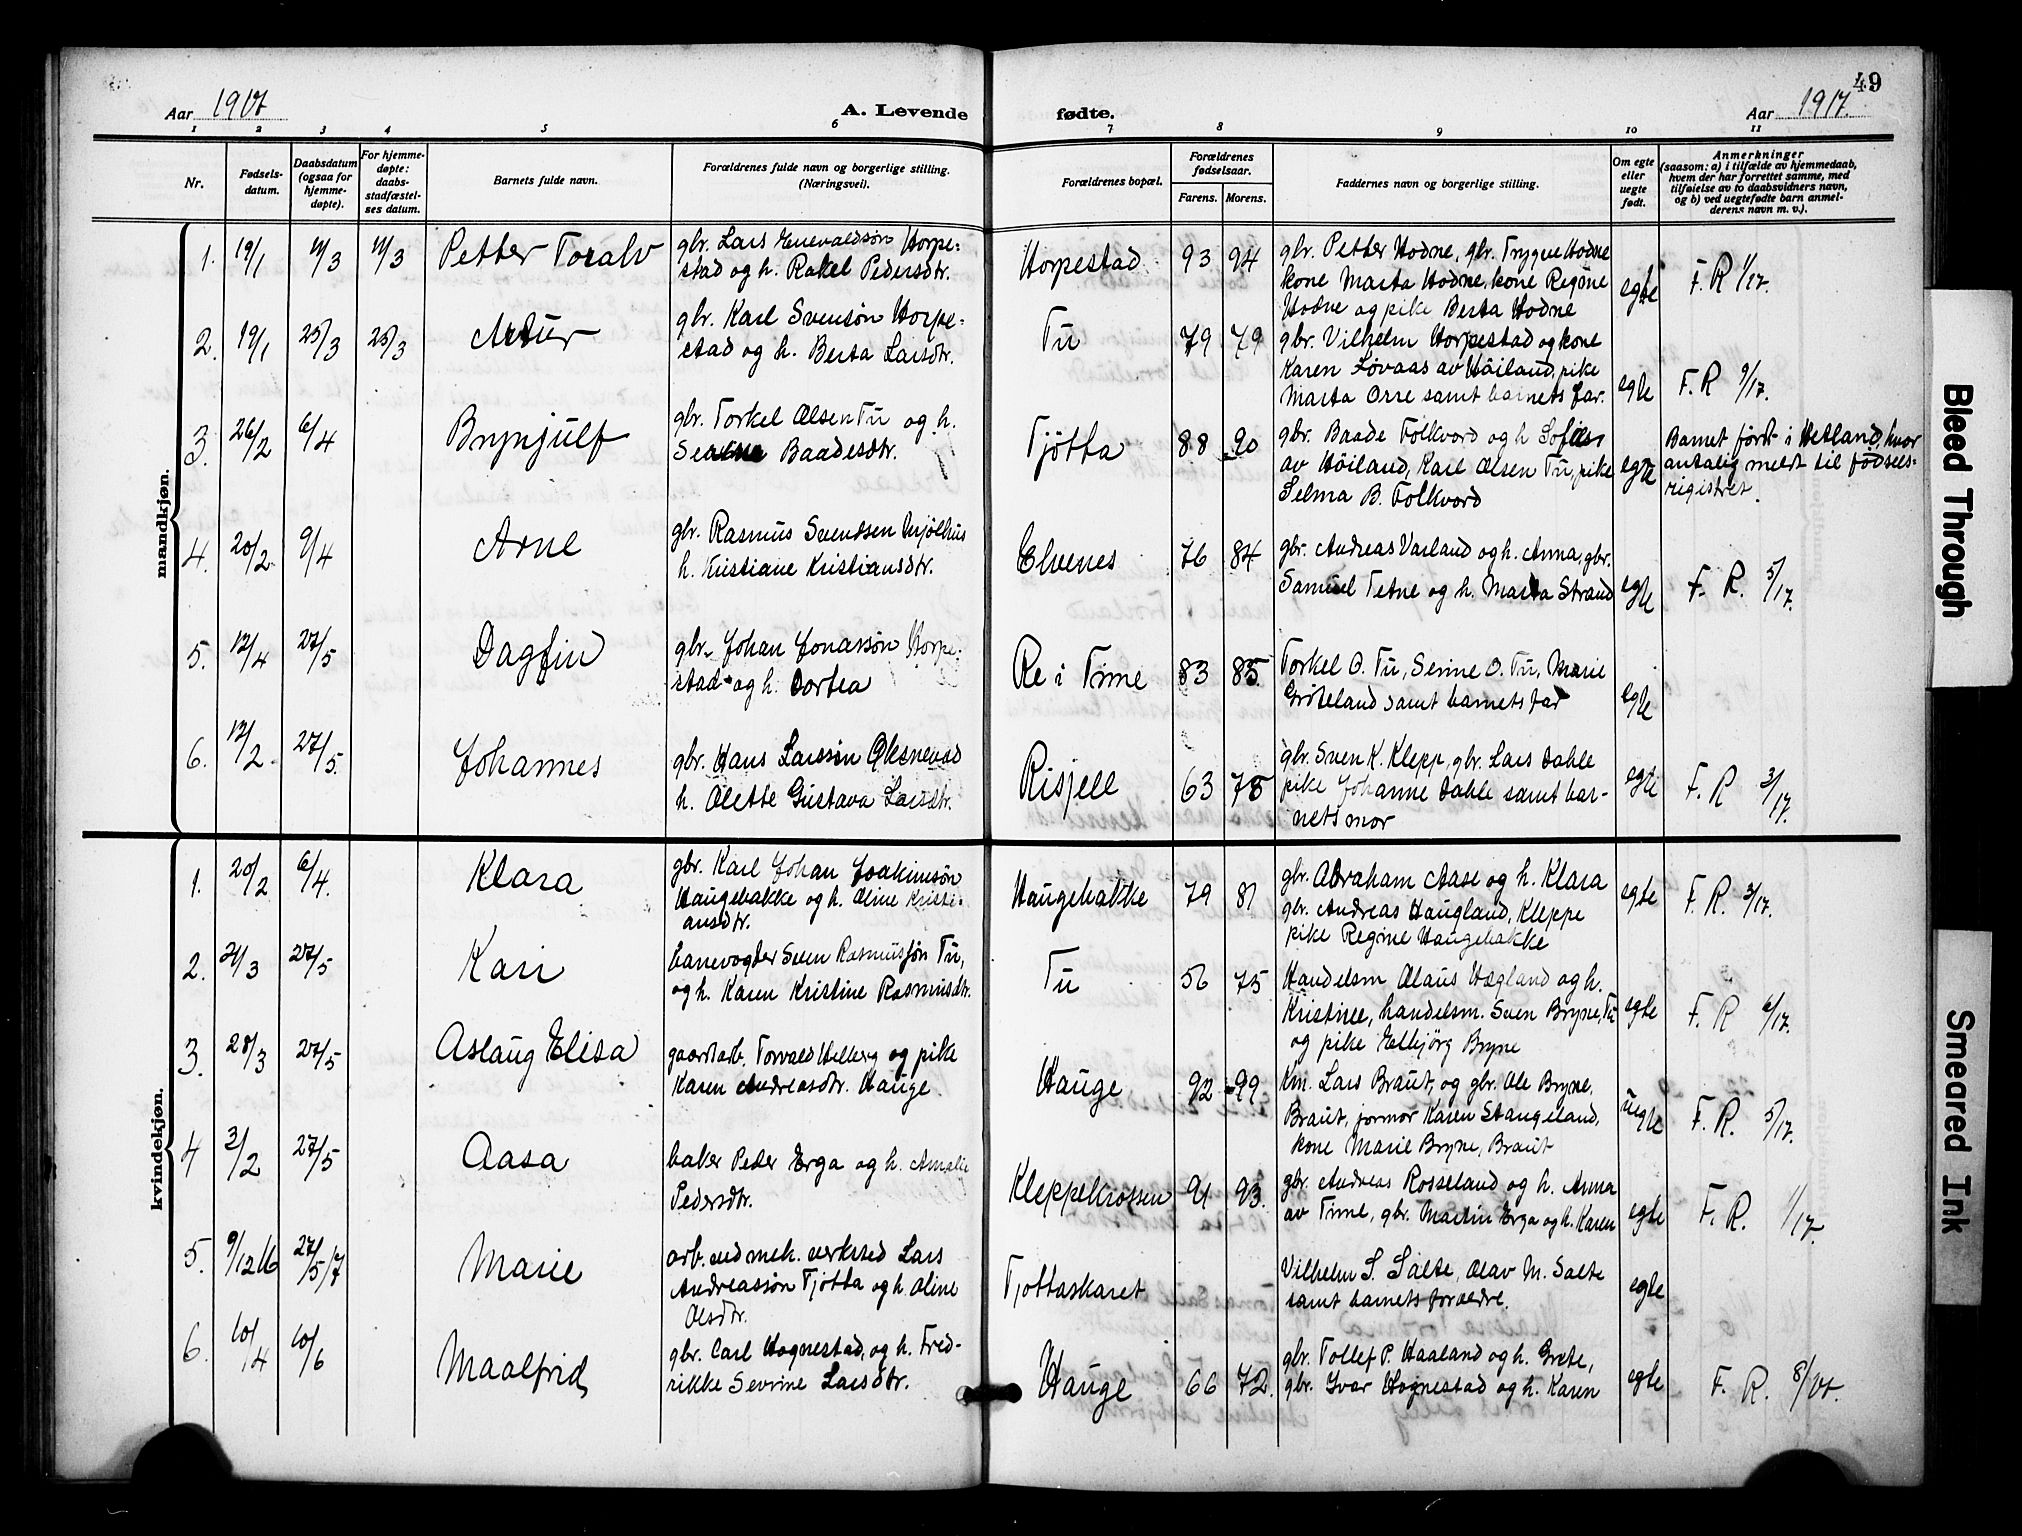 49
Aar 1917 A. Levende fødte. Aar 1917.
1 2 3 4 5 6 7 8 9 10 11
Nr.
Fødsels-
datum.
Daabsdatum
(ogsaa for
hjemme-
døpte).
For hjemme-
døpte:
daabs-
stadfæstel-
ses datum.
Barnets fulde navn.
Forældrenes fulde navn og borgerlige stilling.
(Næringsvei).
Forældrenes bopæl.
Forældrenes
fødselsaar.
Farens. Morens.
Faddernes navn og borgerlige stilling.
Om egte
eller
uegte
født.
Anmerkninger
(saasom: a) i tilfælde av hjemmedaab,
hvem der har forrettet samme, med
tilføielse av to daabsvidners navn,
og b) ved uegtefødte barn anmel-
derens navn m. v.).
mandkjøn.
1. 19/1 11/3 11/3 Petter Toralv
gbr. Lars Enevaldsøn Horpe-
stad og h. Rakel Pedersdtr.
Horpestad 93 94
gbr. Petter Hodne, gbr. Trygve Hodne
kone Marta Hodne, kone Regine
Hodne og pike Berta Hodne
egte F. R 1/17.
2. 19/1 25/3 25/3 Artur
gbr. Karl Svensøn Horpe-
stad og h. Berta Larsdtr.
Tu 79 79
gbr. Vilhelm Horpestad og kone
Karen Løvaas av Høiland, pike
Marta Orre samt barnets far.
egte F. R 9/17.
3. 26/2 6/4 Brynjulf
gbr. Torkel Olsen Tu og h.
Baadesdtr.
Tjøtta 88 90
gbr. Baade Folkvord og h
av Høiland, Karl Olsen Tu, pike
Selma B. Folkvord
egte
Barnet født i Hetland, hvor
antalig meldt til fødsels-
registret.
4. 20/2 9/4 Arne
gbr. Rasmus Svendsen Mjølhus
h. Kristiane Kristiansdtr.
Elvenes 76 84
gbr. Andreas Varland og h. Anna, gbr.
Samuel Tetne og h. Marta Strand
egte F. R. 5/17.
5. 12/4 27/5 Dagfin
gbr. Johan Jonassøn Horpe-
stad og h. Dortea
Re i Time 83 85.
Torkel O. Tu, Serine O. Tu, Marie
Grøteland samt barnets far
egte
6. 12/2 27/5. Johannes
gbr. Hans Larssøn Øksnevad
h. Olette Gustava Larsdtr.
Risjell 63 78
gbr. Sven K. Klepp, gbr. Lars Dahle
pike Johanne Dahle samt bar-
nets mor
egte F. R 3/17.
kvindekjøn.
1. 20/2 6/4. Klara
gbr. Karl Johan Joakimsøn
Haugebakke og h. Oline Kristi-
ansdtr.
Haugebakke 79 81
gbr. Abraham Aase og h. Klara
gbr. Andreas Haugland, Kleppe
pike Regine Haugebakke
egte F. R. 3/17.
2. 21/3 27/5 Kari
banevogter Sven Rasmussøn Tu,
og h. Karen Kristine Rasmusdtr.
Tu 56 75
Handelsm Olaus Hægland og h.
Kristine, handelsm. Sven Bryne, Tu
og pike Elbjørg Bryne
egte F. R 6/17.
3. 28/3 27/5 Aslaug Elisa
gaardarb. Torvald Helberg og pike
Karen Andreasdtr. Hauge
Hauge 92 99
Km. Lars Braut, og gbr. Ole Bryne,
Braut, jormor Karen Stangeland,
kone Marie Bryne, Braut
uegte F. R. 5/17.
4 3/2 27/5 Aasa
baker Peder Erga og h. Amalie
Pedersdtr.
Kleppekrossen 91 93.
gbr. Andreas Rosseland og h. Anna
av Time, gbr. Martin Erga og h. Karen
egte F. R. 1/17.
5. 9/12 16 27/5 17 Marie
arb. ved mek. verksted Lars
Andreassøn Tjøtta og h. Oline
Olsdtr.
Tjøttaskaret
Vilhelm S. Salte, Olav M. Salte
samt barnets forældre.
egte
6. 10/4 10/6 Maalfrid
gbr. Carl Hognestad, og h. Fred-
rikke Sevrine Larsdtr.
Hauge 66 72.
gbr. Tollef P. Haaland og h. Grete,
gbr. Ivar Hognestad og h. Karen
egte F. R. 8/17.
Bleed Through
Smeared Ink